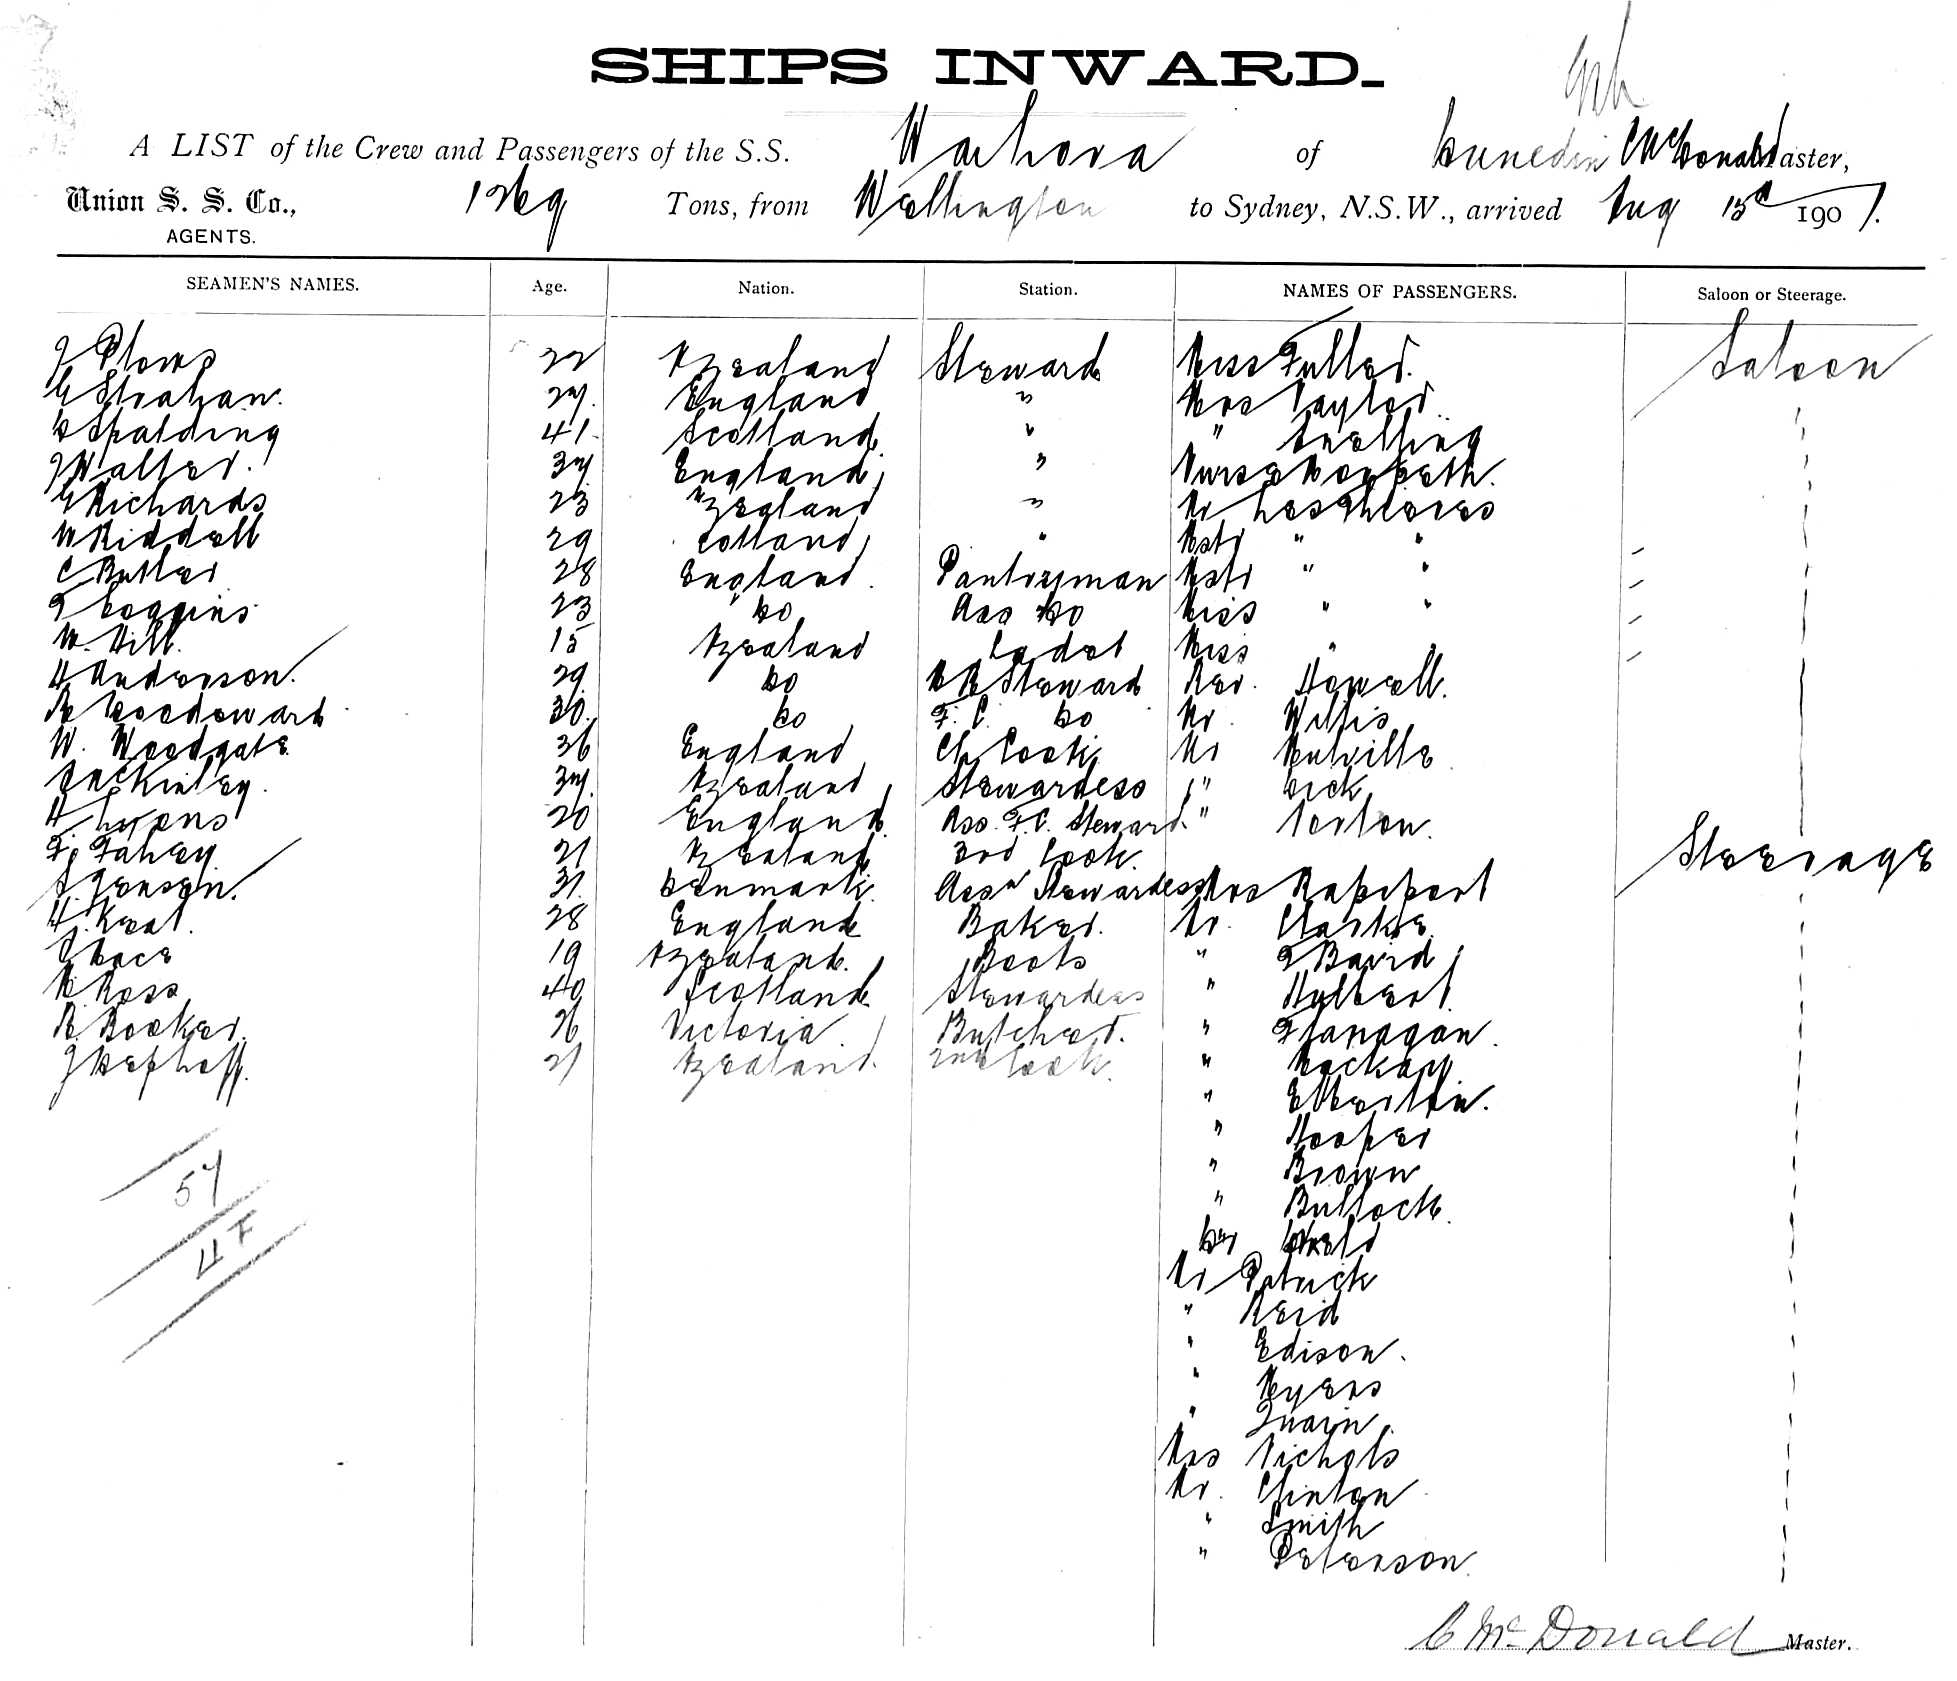 SHIPS INWARD.
A LIST of the Crew and Passengers of the S.S. Wahora of Dunedin C McDonald Master,
Union S. S. Co., Tons, from Wellington to Sydney, N.S.W., arrived Aug 15th 1901.
AGENTS.
SEAMEN'S NAMES. Age. Nation. Station. NAMES OF PASSENGERS. Saloon or Steerage.
J Plows 22 NZealand Steward Miss Fuller. Saloon
G Strahan. 27. England " Mrs Taylor.
D Spalding 41. Scotland " " Snelling
J Walter. 37 England " Nurse
G Richards 23 NZealand " Mr
W Riddell 29 Scotland " Mstr " "
C Butler 28 England. Pantryman Mstr " "
T Coggins 23 Do Ass Do Miss " "
W. Hill. 15 NZealand Cadet Miss " "
H Anderson. 29. Do Steward Rev. Howell.
R Woodward 30. Do F. C. Do Mr. Willis
W. Woodgate 36 England Ch Cook Mr Melville
McKinley. 37. NZealand Stewardess " Dick
H. Lyons 20 England Ass. F.C. Steward. " Norton.
F. Fahey 21 NZealand 3rd Cook. Steerage
Jensen. 31. Denmark. Asst Stewardess Mrs Rapport
H. Keat. 28 England Baker. Mr. Clarke
19 NZealand. Boots " T Baird
M. Ross 40 Scotland Stewardess " Hulbert
R. Booker. 26 Victoria Butcher. " Flanagan.
21 NZealand. 2nd Cook. " Mackay
" Elberton.
" Hooper
" Brown
" Bullock.
57
4 F
Mr Patrick
" Reid
" Edison.
" Myers
" Quain.
Mrs Nichols
Mr. Clinton
" Smith
" Peterson.
C McDonald Master.